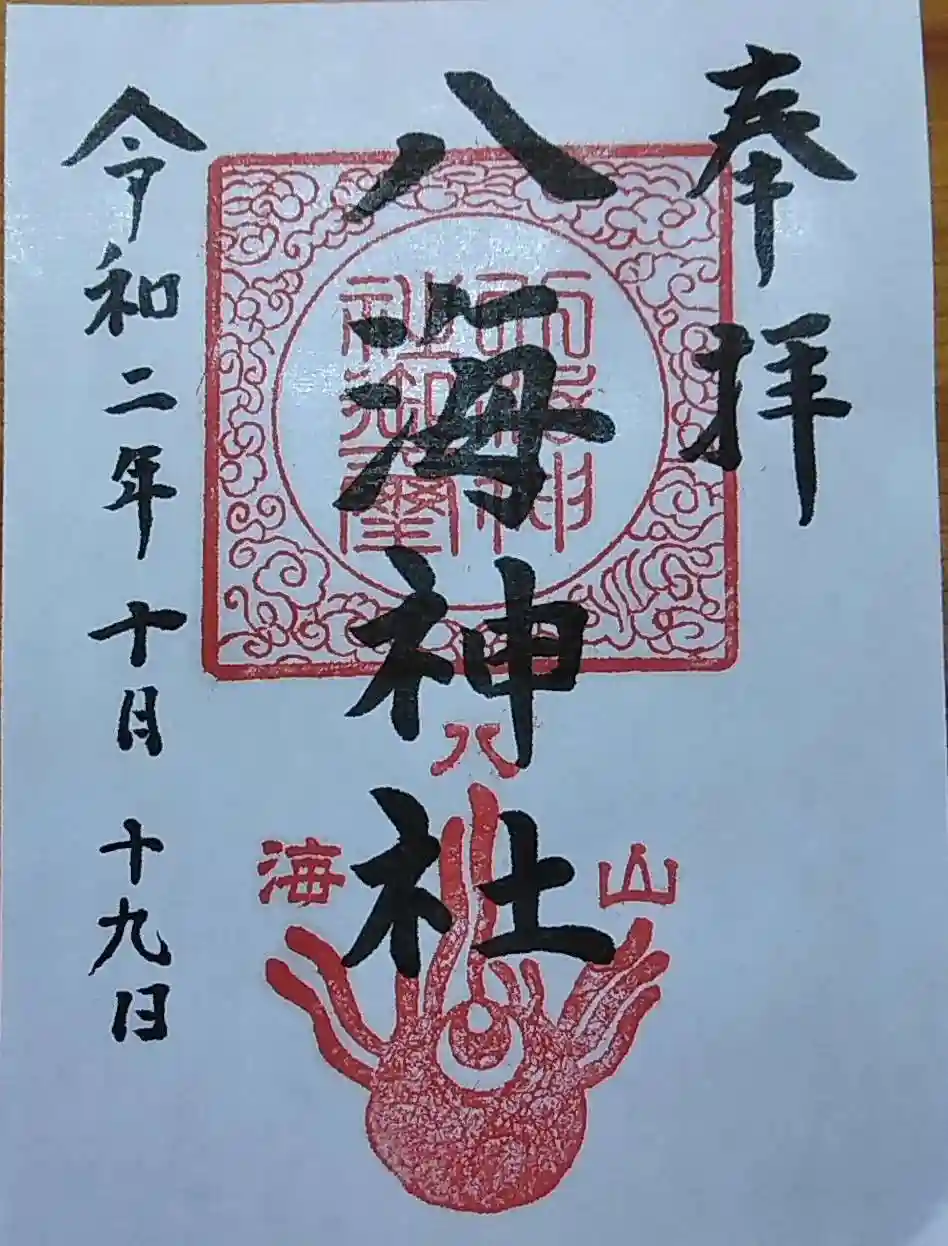 奉拝
八海神社
令和二年十月十九日
社御璽
八
海
山